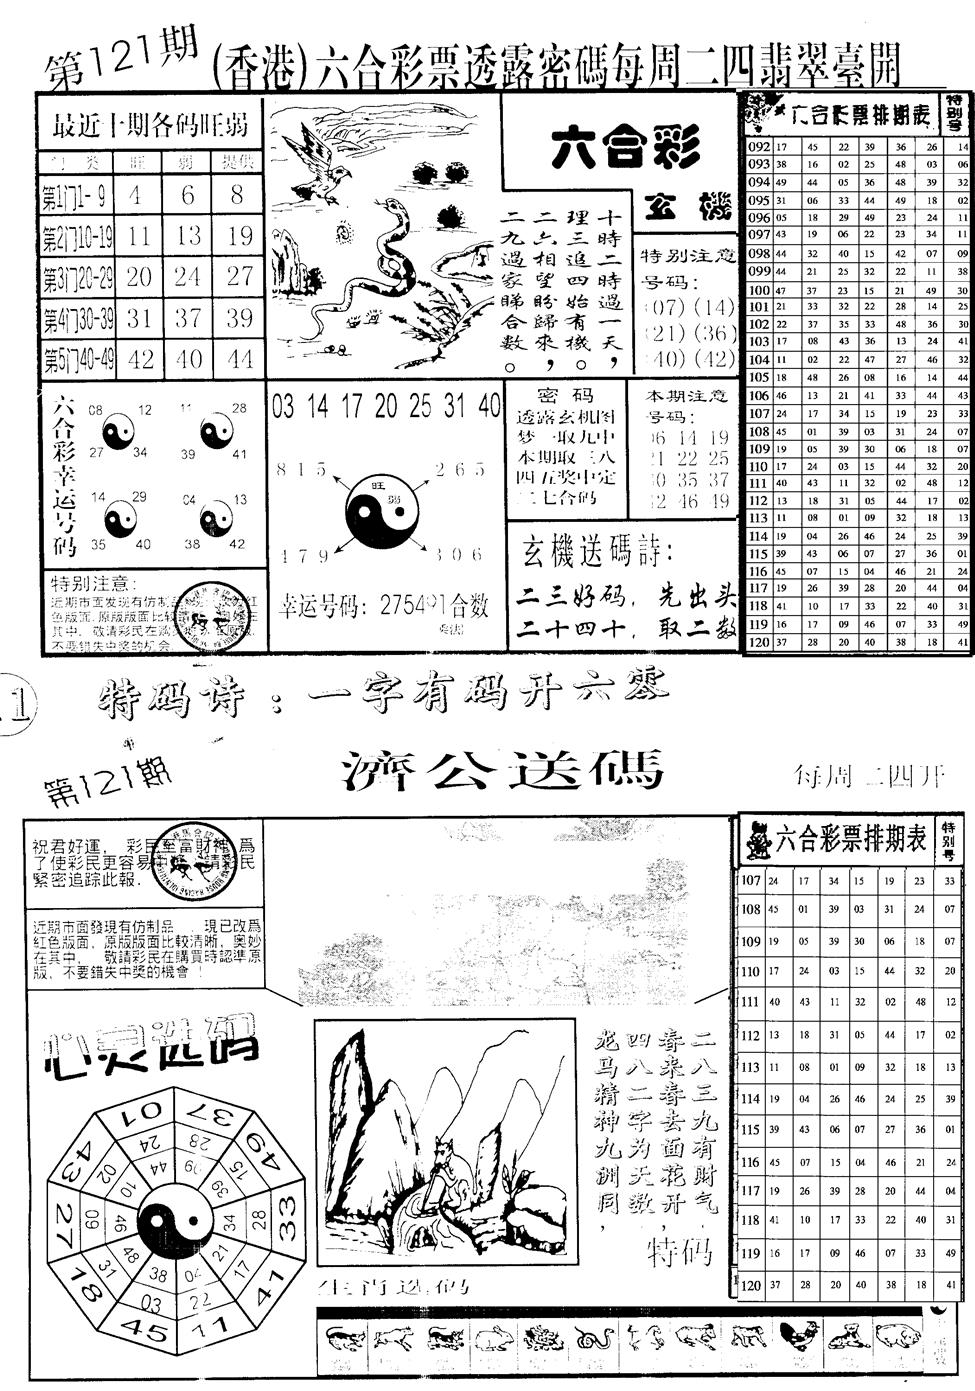 第121期
(香港)六合彩票透露密碼每周二四翡翠臺開
最近十期各码旺弱
门 类 旺 弱 提供
第1门1-9 4 6 8
第2门10-19 11 13 19
第3门20-29 20 24 27
第4门30-39 31 37 39
第5门40-49 42 40 44
六合彩
玄機
十時二時過一天，
理三追四始有機。
二六相望盼歸來，
二九過家睇合數。
特别注意
号码：
(07)(14)
(21)(36)
(40)(42)
六合彩幸运号码
08 12
27 34
11 28
39 41
14 29
35 40
04 13
38 42
特别注意：
03 14 17 20 25 31 40
815 265
旺
弱
479 306
密码
透露玄机图
梦一取九中
本期取三八
四五奖中定
二七合码
本期注意
号码：
06 14 19
21 22 25
30 35 37
42 46 49
玄機送碼詩：
二三好码，先出头
二十四十，取二数
六合彩票排期表 特别号
092 17 45 22 39 36 26 14
093 38 16 02 25 48 03 06
094 49 44 05 36 48 39 32
095 31 06 33 44 49 18 02
096 05 18 29 49 23 24 11
097 43 19 06 22 23 34 11
098 44 32 40 15 42 07 09
099 44 21 25 32 22 11 38
100 47 37 23 15 21 49 30
101 21 33 32 22 28 14 25
102 22 37 35 33 48 36 30
103 17 08 43 36 13 24 41
104 11 02 22 47 27 46 32
105 18 48 26 08 16 14 44
106 46 13 21 41 33 44 43
107 24 17 34 15 19 23 33
108 45 01 39 03 31 24 07
109 19 05 39 30 06 18 07
110 17 24 03 15 44 32 20
111 40 43 11 32 02 48 12
112 13 18 31 05 44 17 02
113 11 08 01 09 32 18 13
114 19 04 26 46 24 25 39
115 39 43 06 07 27 36 01
116 45 07 15 04 46 21 24
117 19 26 39 28 20 44 04
118 41 10 17 33 22 40 31
119 16 17 09 46 07 33 49
120 37 28 20 40 38 18 41
特码诗：一字有码开六零
第121期
濟公送碼
每周二四开
祝君好運， 彩民至富財神 爲
了使彩民更容易
緊密追踪此報.
近期市面發現有仿制品 ，現已改爲
紅色版面，原版版面比較清晰，奥妙
在其中， 敬請彩民在購買時認準原
版，不要錯失中獎的機會！
心灵选码
01 37 49 33 41 11 45 18 27 43
24 28 15 28 17 22 03 31 09 02
44 09 39 34 21 04 38 48 46 10
二八三九有財气.
春来春去面花开,
四八二字为天数
龙马精神九洲同,
特码
生肖选码
六合彩票排期表 特别号
107 24 17 34 15 19 23 33
108 45 01 39 03 31 24 07
109 19 05 39 30 06 18 07
110 17 24 03 15 44 32 20
111 40 43 11 32 02 48 12
112 13 18 31 05 44 17 02
113 11 08 01 09 32 18 13
114 19 04 26 46 24 25 39
115 39 43 06 07 27 36 01
116 45 07 15 04 46 21 24
117 19 26 39 28 20 44 04
118 41 10 17 33 22 40 31
119 16 17 09 46 07 33 49
120 37 28 20 40 38 18 41